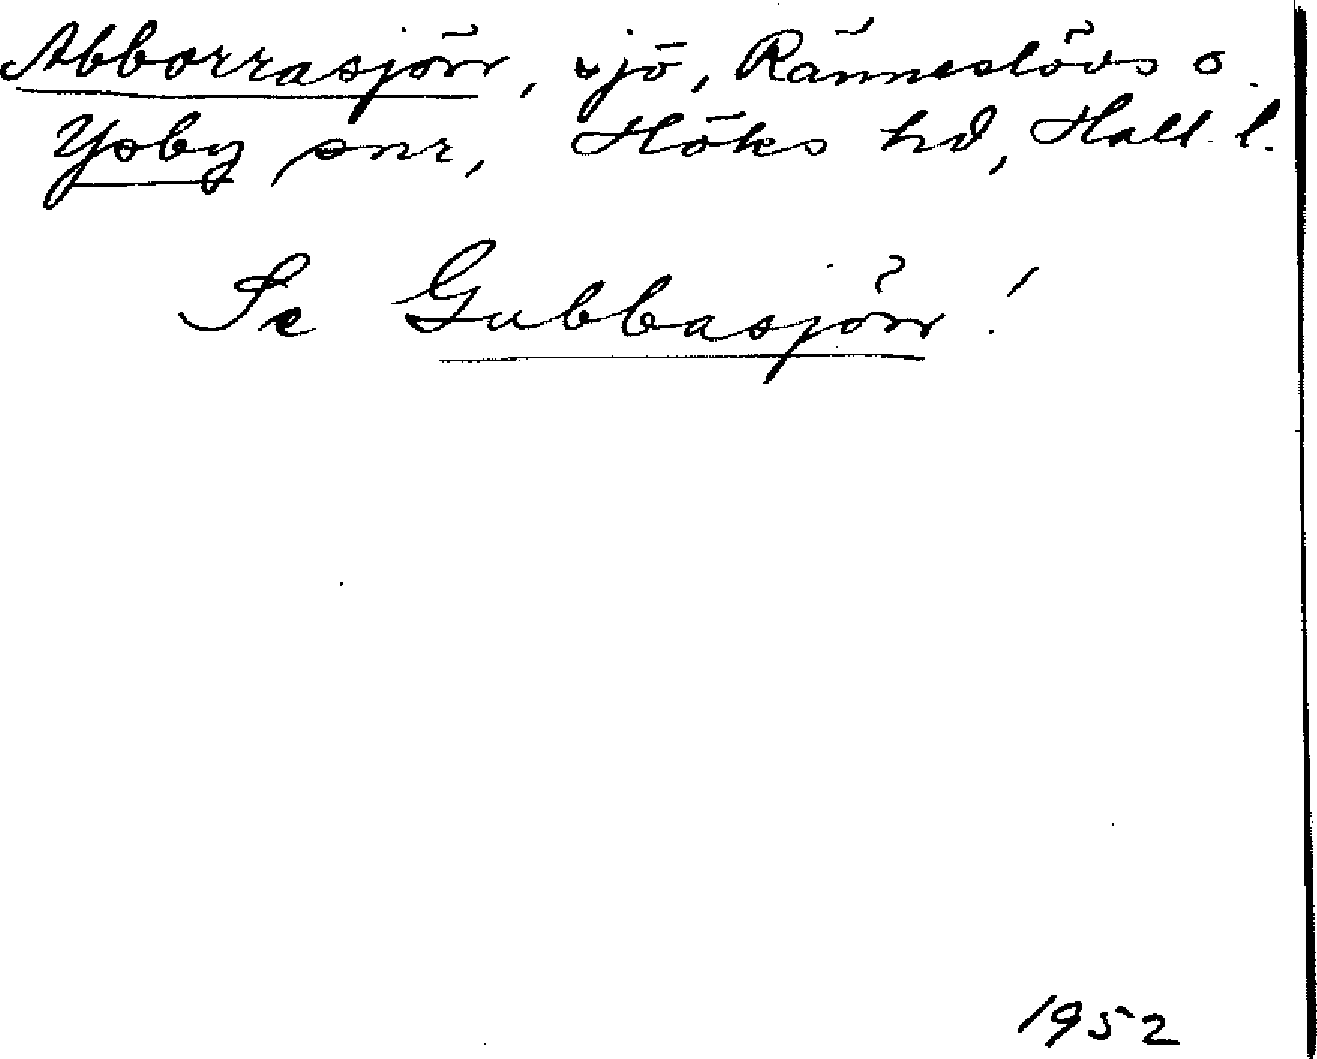 Abborrasjön, sjö, Ränneslövs o.
Ysby snr, Höks hd, Hall. l.
Se Gubbasjön!
1952